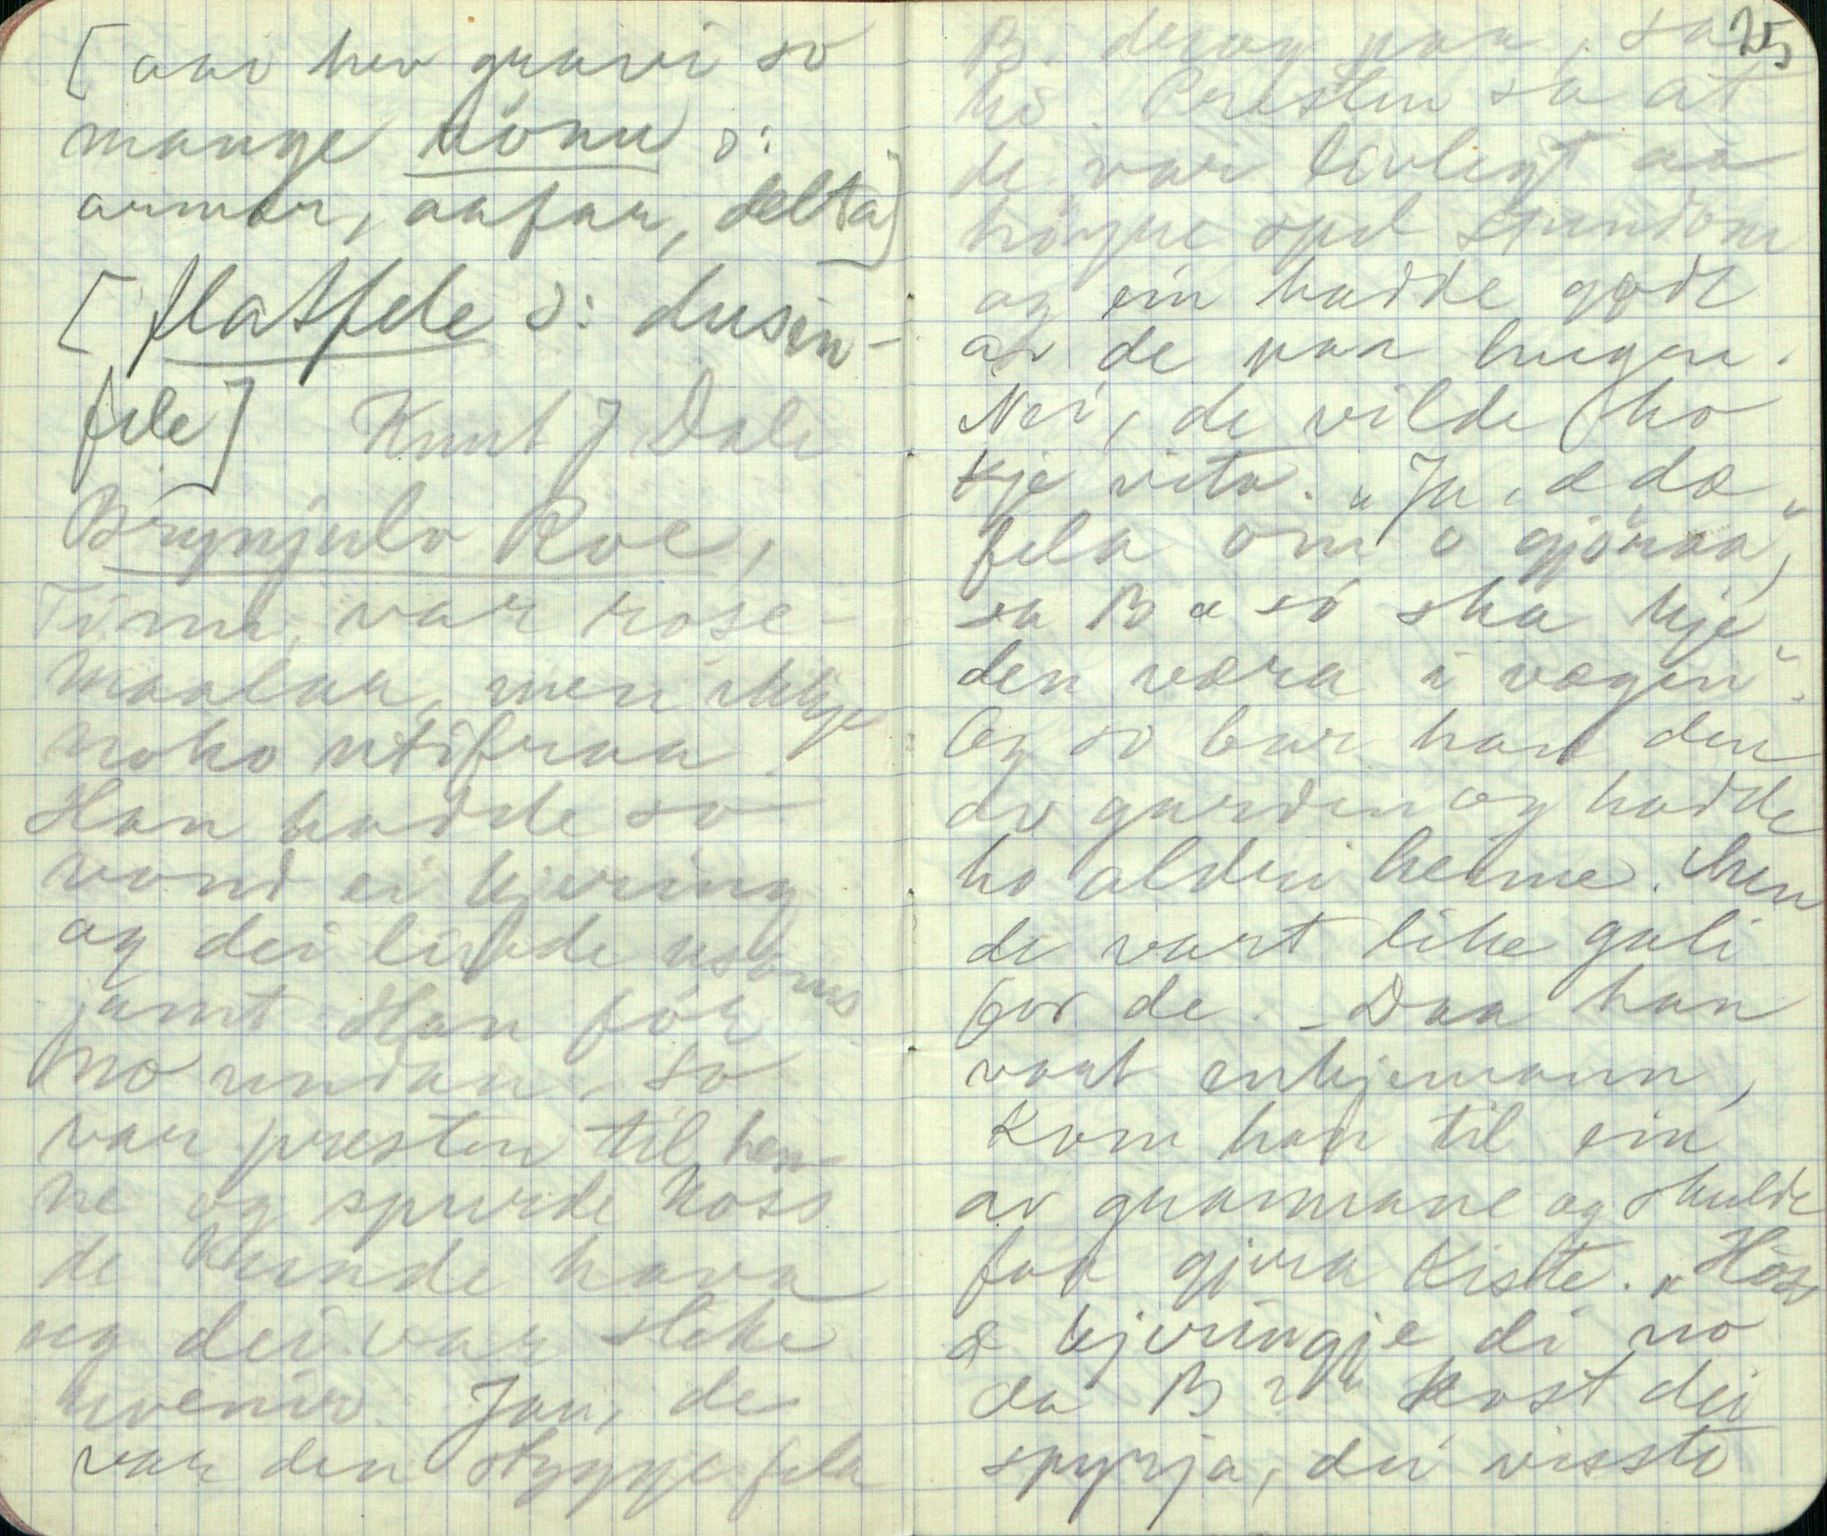 [aai hev gravi so
mange nónu ɔ:
armar, aafar, delta]
[flatfele ɔ: dusin-
fele] Knut J Dale
Brynjulv Roe,
Tinn, var rose-
maalar, men ikkje
noko utifraa.
Han hadde so
vond ei kjering
og dei livde usams
jamt. Han fór
no undan, so
var presten til hen-
ne og spurde koss
de kunde hava
seg dei var slike
uvenir. Jau, de
var den stygge fela
25
B. derog paa, sa
ho. Presten sa at
de var livlegt aa
høyre spel stundom
og ein hadde godt
av de paa hugen.
Nei, de vilde ho
kje vita. "Ja, æ dæ
fela om o gjönaa,"
sa B "so ska kje
den væra i vægen".
Og so bar han den
av garden og hadde
ho aldri heime. Men
de vart like gali
for de. - Daa han
vart enkjemann,
kom han til ein
av grannane og skulde
faa gjera kiste. "Høss
æ kjeringje di no
da B?" "Kost dei
spyrja, dei visste